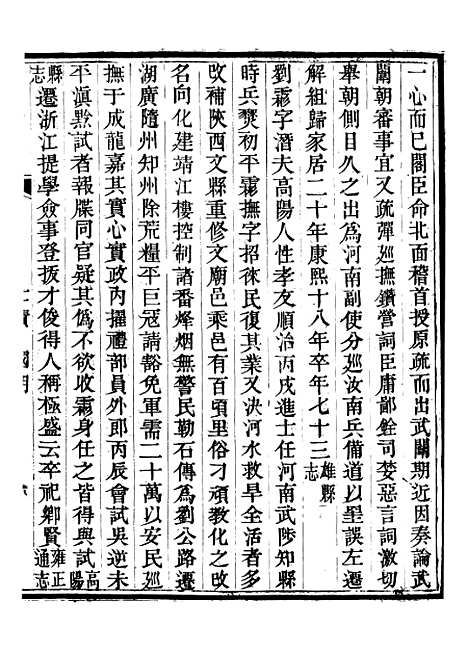 一心而已閣臣命北面稽首授原疏而出武闈期近因奏論武
闈朝審事宜又疏彈廵撫鑽營詞臣庸鄙銓司婪惡言詞激切
舉朝側目久之出爲河南副使分廵汝南兵備道以里誤左遷
解組歸家居二十年康熙十八年卒年七十三雄縣志
劉霦字潛夫高陽人性孝友順治丙戌進士任河南武陟知縣
時兵燹初平霦撫字招徠民復其業又決河水救旱全活者多
改補陜西文縣重修文廟邑乘邑有百頃里俗刁頑教化之改
名向化建靖江樓控制諸番烽烟無警民勒石傳爲劉公路遷
湖廣隨州知州除荒糧平巨寇請豁免軍需二十萬以安民廵
撫于成龍嘉其實心實政內擢禮部員外郎丙辰會試吳逆未
平滇黔試者報牒同官疑其僞不欲收霦身任之皆得與試高陽
縣志遷浙江提學僉事登拔才俊得人稱極盛云卒祀鄉賢雍正通志